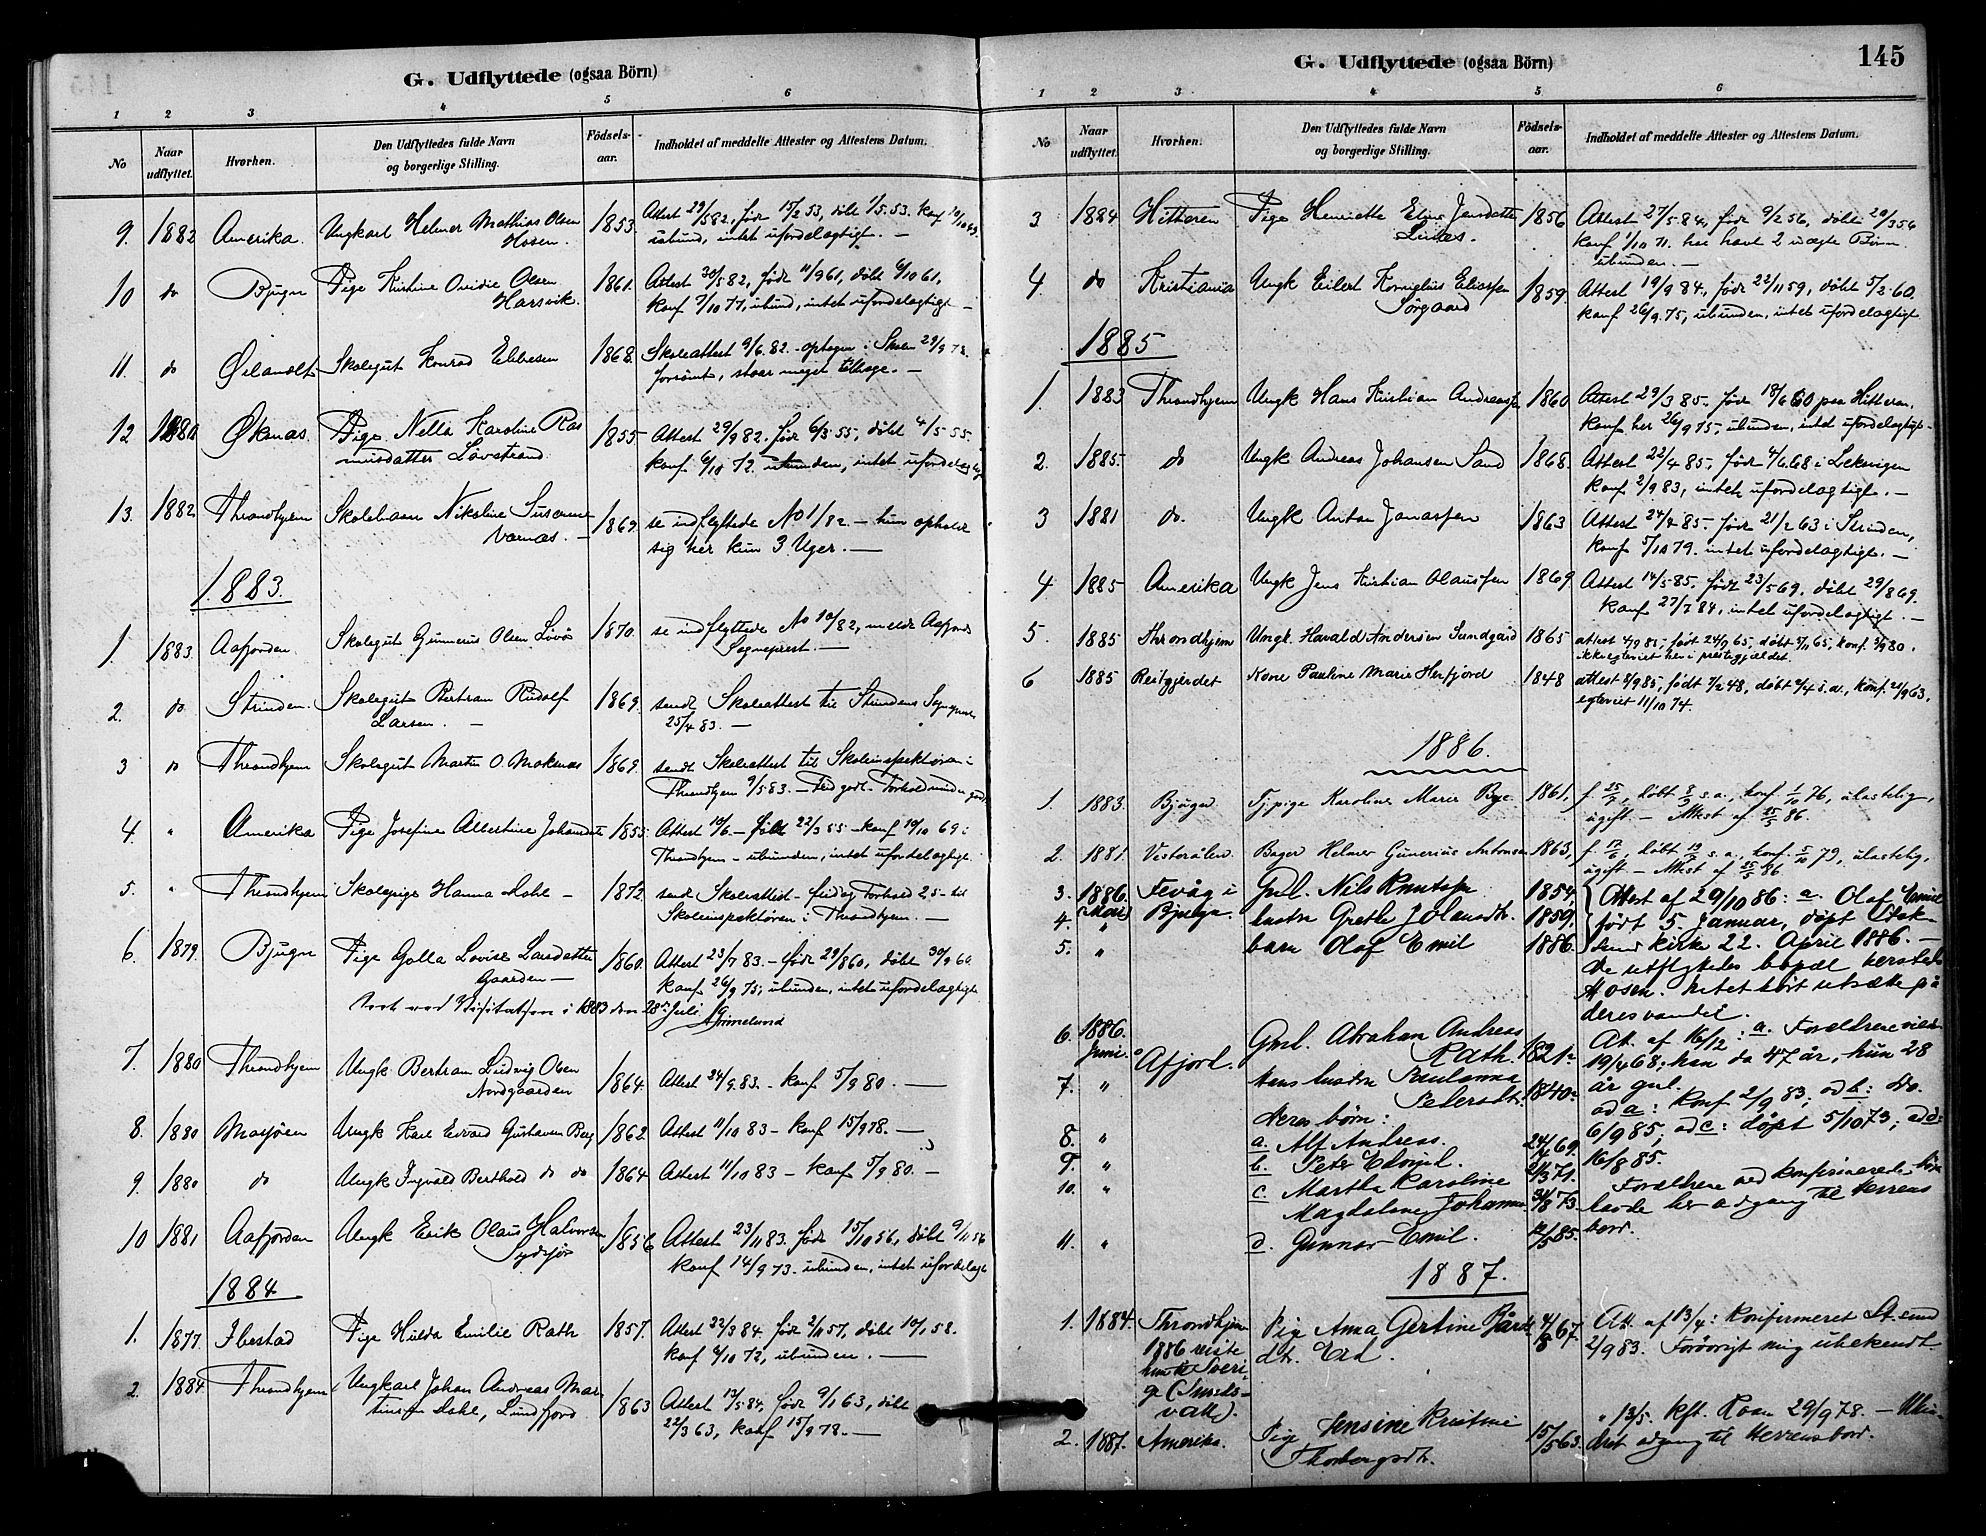 G. Udflyttede (ogsaa Börn)
1 2 3 4 5 6
No Naar udflyttet. Hvorhen. Den Udflyttedes fulde Navn og borgerlige Stilling. Födsels-aar. Indholdet af meddelte Attester og Attestens Datum.
9. 1882 Amerika. Ungkarl Helmer Mathias Olsen 1853 Attest 29/5 82, føde 15/2 53, døbt 1/5. 53. konf
Hosen. ubund, intet ufordelagtigt. —
10 do Bjugn Pige Kristine Ovidie Olsen 1861. Attest 30/5 82, føde 11/9 61, døbt 6/10 61,
Harsvik. konf 7/10 77, ubund, intet ufordelagtigt —
11. do Ørlandet Skolegut Konrad Ebbesen 1868. Skoleattest 9/6. 82. optagen i Skolen 29/9 78.
forsømt, staar meget tilbage. —
12 1880 Øknæs. Pige Nella Karoline Ras 1855 Attest 29/9 82. føde 6/3 55, døbt 4/5 55.
musdatter Løvstrand konf 6/10 72. ubunden, intet ufordelagtigt
13. 1882 Throndhjem Skolebarn Nikoline Susanne 1869. se indflyttede No 1/82. — hun opholdt
Varnæs. — sig her kun 3 Uger. —
1883.
1. 1883. Aafjorden. Skolegut Gunnerus Olsen Løvø 1870. se indflyttede No 10/82, meldt Aafjords
Sogneprest. —
2. do Strinden. Skolegut Bertram Rudolf 1869. sendt Skoleattest til Strindens Sogneprest
Larsen. — 25/4 83. —
3 do Throndhjem Skolegut Martin O. Moknæs 1869. sendt Skoleattest til Skoleinspektøren i
Throndhjem 9/5 83. — Flid godt. Forhold
4. " Amerika Pige Josefine Albertine Johansdt 1855. Attest 10/6 — født 22/3 55 — konf 10/10 69 i
Throndhjem — ubunden, intet ufordelagtigt.
5. " Throndhjem Skolepige Hanna Dahl — 1872. sendt Skoleattest — flid og Forhold 2,5 — til
Skoleinspektøren i Throndhjem. —
6. 1879. Bjugn Pige Golla Lovise Larsdatter 1860. Attest 23/7 83. — føde 29/8 60, døbt 30/9 60.
Gaarden — konf 26/9 75, ubunden, intet ufordelagtigt
ved Visitatsen i 1883 den 28de Juli
Grimelund
7. 1880 Throndhjem Ungk Bertram Ludvig Olsen 1864. Attest 24/9. 83. — konf 5/9 80. —
Nordgaarden
8. 1880 Mosjøen Ungk Karl Edvard Gustavsen Berg 1862. Attest 11/10 83 — konf 15/9 78. —
9. 1880 do Ungk Ingvald Berthold do do 1864 Attest 11/10 83 — konf 5/9 80. —
10 1881 Aafjorden Ungk Erik Olaus Halvorsen 1856 Attest 23/11 83. føde 15/10 56, døbt 9/11 56
Sydsjø konf 14/9 73. ubunden, intet ufordelagt
1884
1. 1877. Ibestad Pige Hilda Emilie Rath 1857. Attest 22/3 84. født 2/11 57, døbt 10/1 58.
konf 6/10 72, ubunden. —
2. 1884 Throndhjem Ungkarl Johan Andreas Mar 1863 Attest 13/5 84, føde 9/1 63, døbt
tinsen Dahl, Lundfjord 22/3 63, konf 15/9 78. —
G. Udflyttede (ogsaa Börn) 145
1 2 3 4 5 6
No Naar udflyttet. Hvorhen. Den Udflyttedes fulde Navn og borgerlige Stilling. Födsels-aar. Indholdet af meddelte Attester og Attestens Datum.
3 1884 Hitteren Pige Henriette Elise Jensdatter 1856 Attest 27/5. 84, føde 9/2 56, døbt 29/3 56
konf 1/10 71. har havt 2 uægte Børn.
ubunden. —
4. do Kristiania Ungk Eilert Kornelius Eliassen 1859. Attest 19/9 84, føde 22/11 59, døbt 5/2 60.
Sørgaard konf 26/9. 75, ubunden, intet ufordelagtigt
1885
1. 1883 Throndhjem Ungk Hans Kristian Andreassen 1860 Attest 29/3 85. føde 18/6 60 paa Hitteren.
konf. her 26/9 75, ubunden, intet ufordelagtigt —
2. 1885. do Ungk Andreas Johansen Sand 1868. Attest 22/4 85, føde 4/6 68 i Leksvigen
konf 2/9 83, intet ufordelagtigt. —
3 1881 do. Ungk Anton Jonassen 1863 Attest 24/4 85. føde 21/2 63 i Strinden,
konf 5/10 79. intet ufordelagtigt. —
4 1885 Amerika Ungk Jens Kristian Olaussen 1869 Attest 14/5 85. født 23/5 69. døbt 29/8 69.
konf 27/7 84, intet ufordelagtigt. —
5. 1885 Throndhjem Ungk. Harald Andersen Sundgård 1865 attest 4/9 85, født 24/9 65, døbt 5/11 65, konf. 5/9 80.
ikke egteviet her i prestegjeldet.
6 1885 Reitgjerdet Kone Pauline Marie Herfjord 1848 attest 8/9 85, født 7/2 48, døbt 2/4 s. a., konf. 2/9 63,
egteviet 11/10 74.
1886.
1. 1883. Bjugn Tj.pige Karoline Marie Bye 1861, f. 25/7, døbt 8/9 s. a., konf. 1/10 76, ulastelig,
ugift — Attest af 25/5 86.
2. 1881. Vesterålen. Bager Helmer Gunerius Antonsen 1863, f. 17/6, døbt 19/7 s. a., konf. 5/10 79, ulastelig,
ugift — Attest af 25/5 86
3. 1886. Fevåg i Gml. Nils Knutsen 1854, Attest af 29/10 86: a. Olaf Emil
4. (Mai) " Bjugn. hustru Grethe Jolensdtr. 1859, født 5. Januar, døpt Stok-
5. " barn Olaf Emil 1886. sund kirke 22. April 1886. —
De utflyttedes bopæl herstedet
Hosen. Intet hørt utsætte på
deres vandel.
6. 1886. Juni. Afjord. Gml. Abraham Andreas Rath. 1821. Att. af 16/12: a. Forældrene viede
19/4 68; han da 47 år, hun 28
7. " Hans hustru Paulanna Petersdtr. 1840. år gml.
Deres børn: ad a: konf 2/9 83; ad b: do.
8. " a. Alf Andreas. 24/4 69. 6/9 85; ad c: døpt 5/10 73; ad d:
9. " b. Peter Edvind. 21/3 71. 16/8 85.
10. " c. Martha Karoline Forældrene med konfirmerede børn
Magdalene Johanna 31/8 73 havde her adgang til Herrens
11. " d. Gunnar Emil. 12/5 85. bord.
1887.
1. 1884. Throndhjem Pige Anna Gertine Bårds 4/8 67. Att. af 13/4: konfirmeret St.sund
1886 reiste dtr. Eid. 2/9 83. Forøvrigt mig ubekendt
hun til Sveri-
ge (Sunds-
vall).
2. 1887. Amerika. Pige Jensine Kristine 15/5 63. " 13/5. kft. Roan 29/9 78. — Uhin-
Thorbergsdtr. dret adgang til Herrens bord.